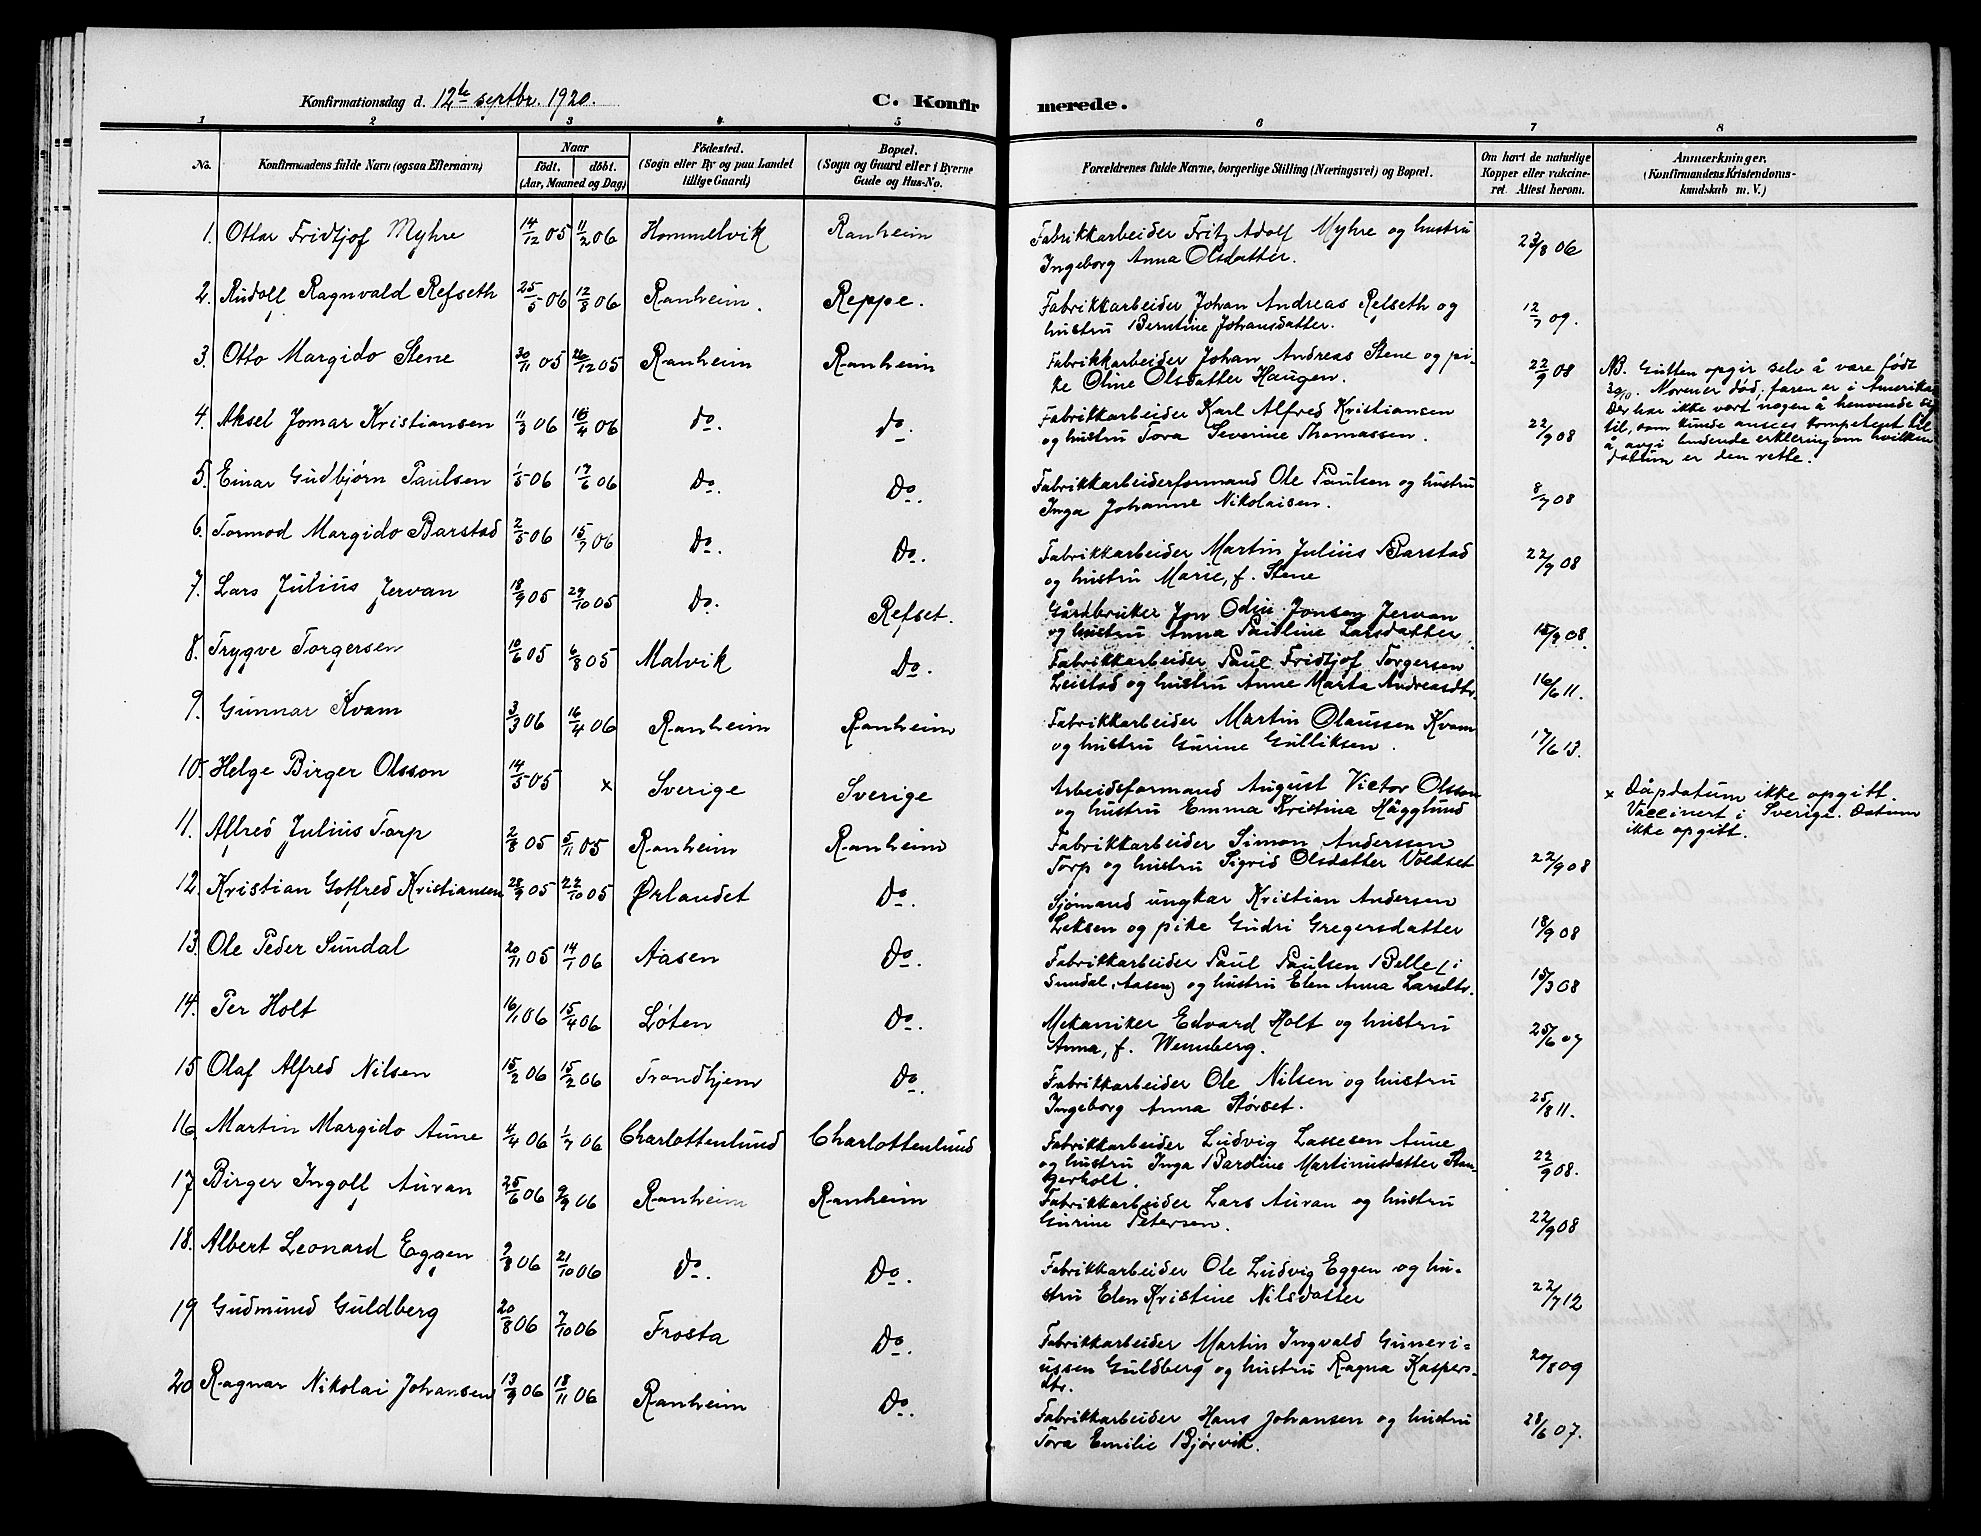 Konfirmationsdag d. 12te septbr. 1920. C. Konfir merede.
1 2 3 4 5 6 7 8
No. Konfirmandens fulde Navn (ogsaa Efternavn) Naar født. døbt. (Aar, Maaned og Dag) Fødested. (Sogn eller By og paa Landet tillige Gaard) Bopæl. (Sogn og Gaard eller i Byerne Gade og Hus-No. Forældrenes fulde Navne, borgerlige Stilling (Næringsvei) og Bopæl. Om havt de naturlige Kopper eller vakcineret. Attest herom. Anmærkninger. (Konfirmandens Kristendomskundskab m. V.)
1. Ottar Fridtjof Myhre 14/12 05 11/2 06 Hommelvik Ranheim Fabrikkarbeider Fritz Adolf Myhre og hustru
Ingeborg Anna Olsdatter. 23/8 06
2. Rudolf Ragnvald Refseth 25/5 06 12/8 06 Ranheim. Reppe. Fabrikkarbeider Johan Andreas Refseth og
hustru Berntine Johansdatter. 12/7 09.
3. Otto Margido Stene 30/11 05 26/12 05 Ranheim Ranheim Fabrikkarbeider Johan Andreas Stene og pi-
ke Oline Olsdatter Haugen. 22/9 08
NB. Gutten opgir selv å være født
30/10. Moren er død; faren er i Amerika.
Der har ikke vært nogen å henvende sig
til, som kunde ansees kompetent til
å avgi bindende erklering om hvilken
datum er den rette.
4. Aksel Jomar Kristiansen 11/3 06 16/4 06 do. do. Fabrikkarbeider Karl Alfred Kristiansen
og hustru Tora Severine Thomassen. 22/9 08
5. Einar Gudbjørn Paulsen 1/5 06 17/6 06 Do. Do. Fabrikkarbeiderformand Ole Paulsen og hustru
Inga Johanne Nikolaisen. 8/7 08
6. Tormod Margido Barstad 2/5 06 15/7 06 Do. Do. Fabrikkarbeider Martin Julius Barstad
og hustru Marie, f. Stene 22/9 08
7. Lars Julius Jervan 18/9 05 29/10 05 Do. Refset. Gårdbruker Jon Odin Jonsen Jervan
og hustru Anna Pauline Larsdatter 15/9 08.
8. Trygve Torgersen 10/6 05 6/8 05 Malvik Do. Fabrikkarbeider Paul Fridtjof Torgersen
Leistad og hustru Anne Marta Andreasdtr. 16/6 11.
9. Gunnar Kvam 3/3 06 16/4 06 Ranheim Ranheim Fabrikkarbeider Martin Olaussen Kvam
og hustru Gurine Gulliksen. 17/6 13.
10. Helge Birger Olsson 14/5 05 x Sverige Sverige Arbeidsformand August Victor Olsson
og hustru Emma Kristina Hägglund
x Dåpdatum ikke opgitt.
Vaccinert i Sverige. Datum
ikke opgitt.
11. Alfred Julius Torp 2/8 05 5/11 05 Ranheim Ranheim Fabrikkarbeider Simon Anderssen
Torp og hustru Sigrid Olsdatter Voldset 22/9 08
12. Kristian Gotfred Kristiansen 28/9 05 22/10 05 Ørlandet Do. Sjømand ungkar Kristian Andersen
Leksen og pike Gudri Gregersdatter 18/9 08
13. Ole Peder Sundal 20/11 05 14/1 06 Aasen Do. Fabrikkarbeider Paul Paulsen Belle (i
Sundal, Aasen) og hustru Elen Anna Larsdtr. 15/3 08
14. Per Holt 16/1 06 15/4 06 Løten Do. Mekaniker Edvard Holt og hustru
Anna, f. Wennberg. 25/6 07
15 Olaf Alfred Nilsen 15/2 06 15/2 06 Trondhjem Do. Fabrikkarbeider Ole Nilsen og hustru
Ingeborg Anna Størset. 25/8 11.
16. Martin Margido Aune 4/4 06 1/7 06 Charlottenlund Charlottenlund Fabrikkarbeider Ludvig Lassesen Aune
og hustru Inga Bardine Martinusdatter Stan-
gerholt. 22/9 08.
17 Birger Ingolf Auran 25/6 06 9/9 06 Ranheim Ranheim Fabrikkarbeider Lars Auran og hustru
Gurine Petersen. 22/9 08
18. Albert Leonard Eggen 9/8 06 21/10 06 Do. Do. Fabrikkarbeider Ole Ludvig Eggen og hu-
stru Elen Kristine Nilsdatter 22/7 12
19 Gudmund Guldberg 20/8 06 7/10 06 Frosta Do. Fabrikkarbeider Martin Ingvald Guneri-
ussen Guldberg og hustru Ragna Kaspers-
dtr. 20/8 09
20 Ragnar Nikolai Johansen 13/9 06 18/11 06 Ranheim Do. Fabrikkarbeider Hans Johansen og hustru
Tora Emilie Bjørvik. 28/6 07.